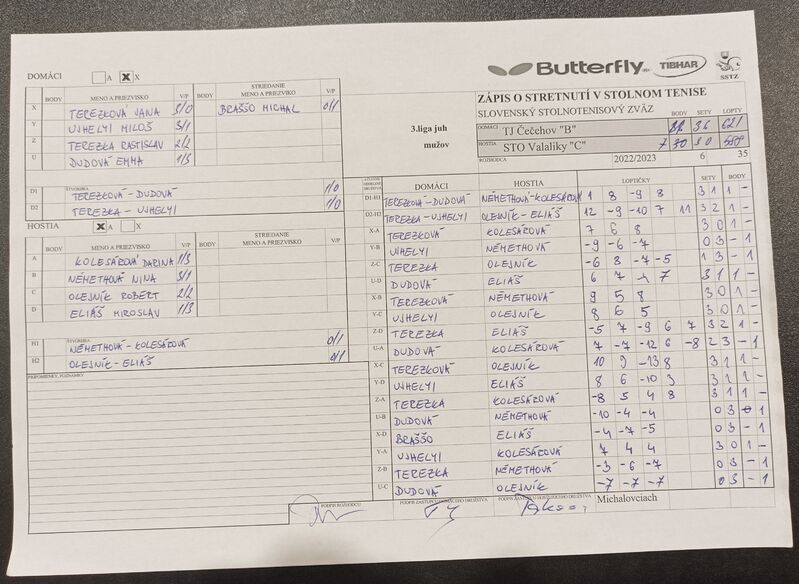 DOMÁCI A X X
Butterfly TIBHAR SSTZ
BODY MENO A PRIEZVISKO V/P BODY STRIEDANIE MENO A PRIEZVIKO V/P
X TEREZKOVÁ JANA 3/0 BRAŠŠO MICHAL 0/1
Y UJHELYI MILOŠ 3/1
Z TEREZKA RASTISLAV 2/2
U DUDOVÁ EMMA 1/3
ŠTVORHRA
D1 TEREZKOVÁ - DUDOVÁ 1/0
D2 TEREZKA - UJHELYI 1/0
HOSTIA X A X
BODY MENO A PRIEZVISKO V/P BODY STRIEDANIE MENO A PRIEZVISKO V/P
A KOLESÁROVÁ DARINA 1/3
B NÉMETHOVÁ NINA 3/1
C OLEJNÍK ROBERT 2/2
D ELIÁŠ MIROSLAV 1/3
ŠTVORHRA
H1 NÉMETHOVÁ - KOLESÁROVÁ 0/1
H2 OLEJNÍK - ELIÁŠ 0/1
PRIPOMIENKY, POZNÁMKY
PODPIS ROZHODCU
3.liga juh
mužov
ZÁPIS O STRETNUTÍ V STOLNOM TENISE
SLOVENSKÝ STOLNOTENISOVÝ ZVÄZ BODY SETY LOPTY
DOMÁCI TJ Čečehov "B" 36 621
HOSTIA STO Valaliky "C" 7 30
ROZHODCA 2022/2023 6 35
DOMÁCI HOSTIA LOPTIČKY SETY BODY
D1-H1 TEREZKOVÁ - DUDOVÁ NÉMETHOVÁ - KOLESÁROVÁ 1 8 -9 8 3 1 1 -
D2-H2 TEREZKA - UJHELYI OLEJNÍK - ELIÁŠ 12 -9 -10 7 11 3 2 1 -
X-A TEREZKOVÁ KOLESÁROVÁ 7 6 8 3 0 1 -
Y-B UJHELYI NÉMETHOVÁ -9 -6 -7 0 3 - 1
Z-C TEREZKA OLEJNÍK -6 8 -7 -5 1 3 - 1
U-D DUDOVÁ ELIÁŠ 6 7 7 3 1 1 -
X-B TEREZKOVÁ NÉMETHOVÁ 9 5 8 3 0 1 -
Y-C UJHELYI OLEJNÍK 8 6 5 3 0 1 -
Z-D TEREZKA ELIÁŠ -5 7 -9 6 7 3 2 1 -
U-A DUDOVÁ KOLESÁROVÁ 7 -7 -12 6 -8 2 3 - 1
X-C TEREZKOVÁ OLEJNÍK 10 9 -13 8 3 1 1 -
Y-D UJHELYI ELIÁŠ 8 6 -10 3 3 1 1 -
Z-A TEREZKA KOLESÁROVÁ -8 5 4 8 3 1 1 -
U-B DUDOVÁ NÉMETHOVÁ -10 -4 -4 0 3 - 1
X-D BRAŠŠO ELIÁŠ -4 -7 -5 0 3 - 1
Y-A UJHELYI KOLESÁROVÁ 7 4 4 3 0 1 -
Z-B TEREZKA NÉMETHOVÁ -3 -6 -7 0 3 - 1
U-C DUDOVÁ OLEJNÍK -7 -7 -7 0 3 - 1
Michalovciach